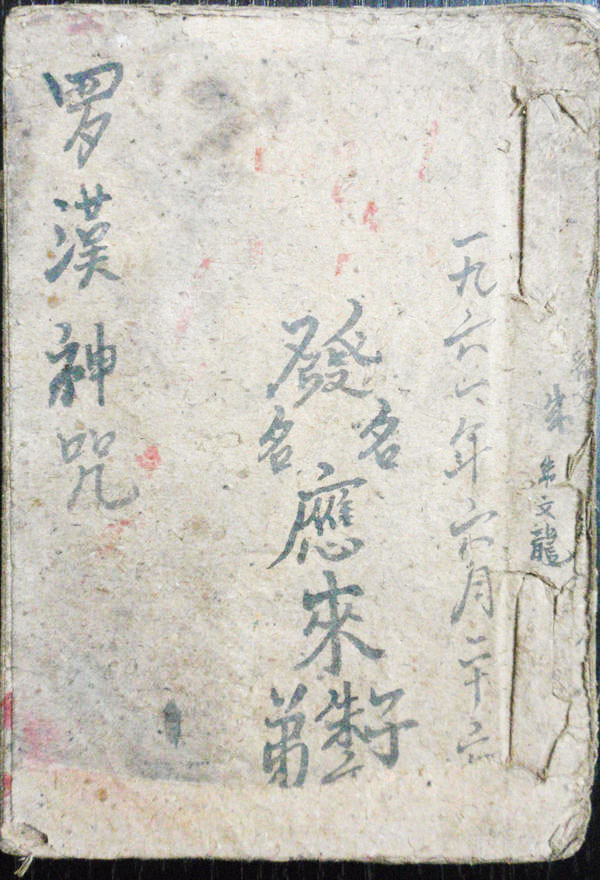 朱
朱文龍
一九六六年六月二十
發
名 名
應來
弟朱子
罗漢神咒